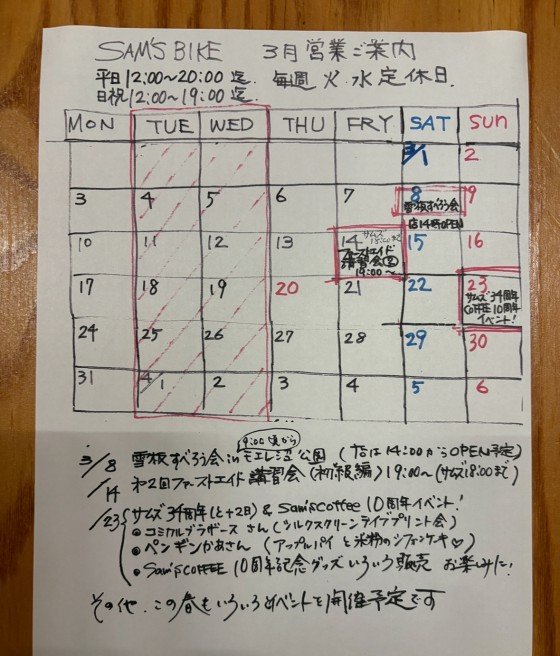 SAM'S BIKE 3月営業ご案内
平日12:00〜20:00迄. 毎週 火.水定休日.
日祝12:00〜19:00迄.
MON TUE WED THU FRI SAT SUN
3/1 2
3 4 5 6 7 8 9
雪板すべろう会
店14時OPEN
10 11 12 13 14 15 16
サムズ18:00まで
ファーストエイド
講習会②
19:00〜
17 18 19 20 21 22 23
サムズ34周年
COFFEE10周年
イベント!
24 25 26 27 28 29 30
31 4/1 2 3 4 5 6
9:00頃から
3/8 雪板すべろう会 in モエレ沼公園 (店は14:00からOPEN予定)
/14 第2回ファーストエイド講習会(初級編)19:00〜(サムズ18:00まで)
/23 サムズ34周年(と+2日)& Sam's Coffee 10周年イベント!
●コミカルブラザース さん(シルクスクリーンライブプリント会)
●ペンギンかあさん (アップルパイと米粉のシフォンケーキ♡)
●Sam's COFFEE 10周年記念グッズいろいろ販売 お楽しみに!
その他、この春もいろいろイベントを開催予定です